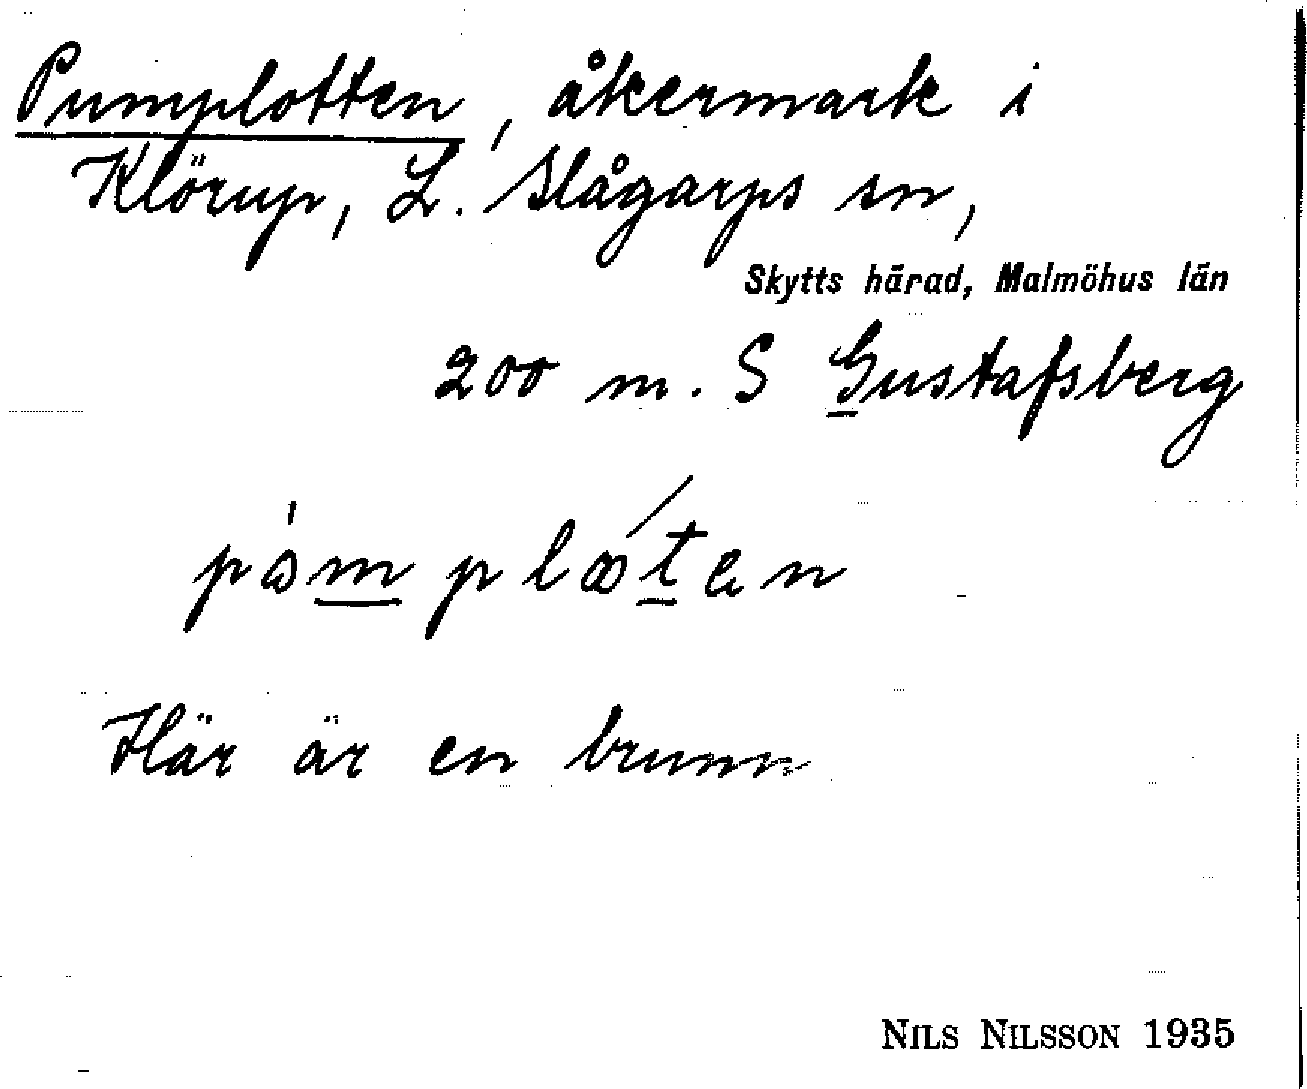 Pumplotten, åkermark i
Klörup, L. Slågarps sn,
Skytts härad, Malmöhus län
200 m. S Gustafsberg
Här är en brunn
NILS NILSSON 1935